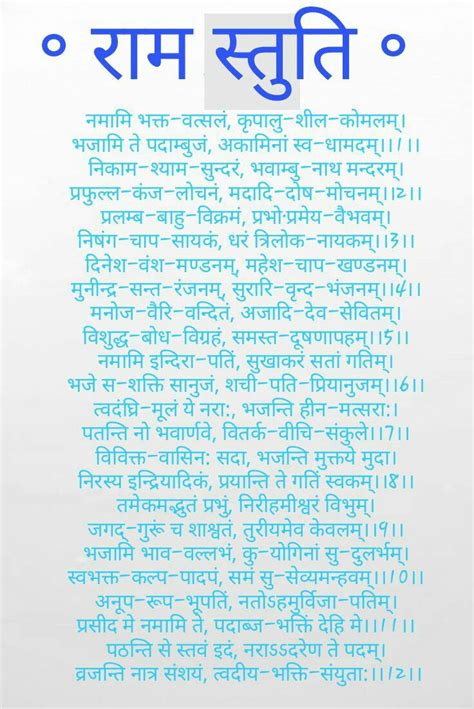 ° राम स्तुति °
नमामि भक्त-वत्सलं, कृपालु-शील-कोमलम्।
भजामि ते पदाम्बुजं, अकामिनां स्व-धामदम्।।1।।
निकाम-श्याम-सुन्दरं, भवाम्बु-नाथ मन्दरम्।
प्रफुल्ल-कंज-लोचनं, मदादि-दोष-मोचनम्।।2।।
प्रलम्ब-बाहु-विक्रमं, प्रभो·प्रमेय-वैभवम्।
निषंग-चाप-सायकं, धरं त्रिलोक-नायकम्।।3।।
दिनेश-वंश-मण्डनम्, महेश-चाप-खण्डनम्।
मुनीन्द्र-सन्त-रंजनम्, सुरारि-वृन्द-भंजनम्।।4।।
मनोज-वैरि-वन्दितं, अजादि-देव-सेवितम्।
विशुद्ध-बोध-विग्रहं, समस्त-दूषणापहम्।।5।।
नमामि इन्दिरा-पतिं, सुखाकरं सतां गतिम्।
भजे स-शक्ति सानुजं, शची-पति-प्रियानुजम्।।6।।
त्वदंघ्रि-मूलं ये नरा:, भजन्ति हीन-मत्सरा:।
पतन्ति नो भवार्णवे, वितर्क-वीचि-संकुले।।7।।
विविक्त-वासिन: सदा, भजन्ति मुक्तये मुदा।
निरस्य इन्द्रियादिकं, प्रयान्ति ते गतिं स्वकम्।।8।।
तमेकमद्भुतं प्रभुं, निरीहमीश्वरं विभुम्।
जगद्-गुरूं च शाश्वतं, तुरीयमेव केवलम्।।9।।
भजामि भाव-वल्लभं, कु-योगिनां सु-दुर्लभम्।
स्वभक्त-कल्प-पादपं, समं सु-सेव्यमन्हवम्।।10।।
अनूप-रूप-भूपतिं, नतोऽहमुर्विजा-पतिम्।
प्रसीद मे नमामि ते, पदाब्ज-भक्तिं देहि मे।।11।।
पठन्ति से स्तवं इदं, नराऽऽदरेण ते पदम्।
व्रजन्ति नात्र संशयं, त्वदीय-भक्ति-संयुता:।।12।।